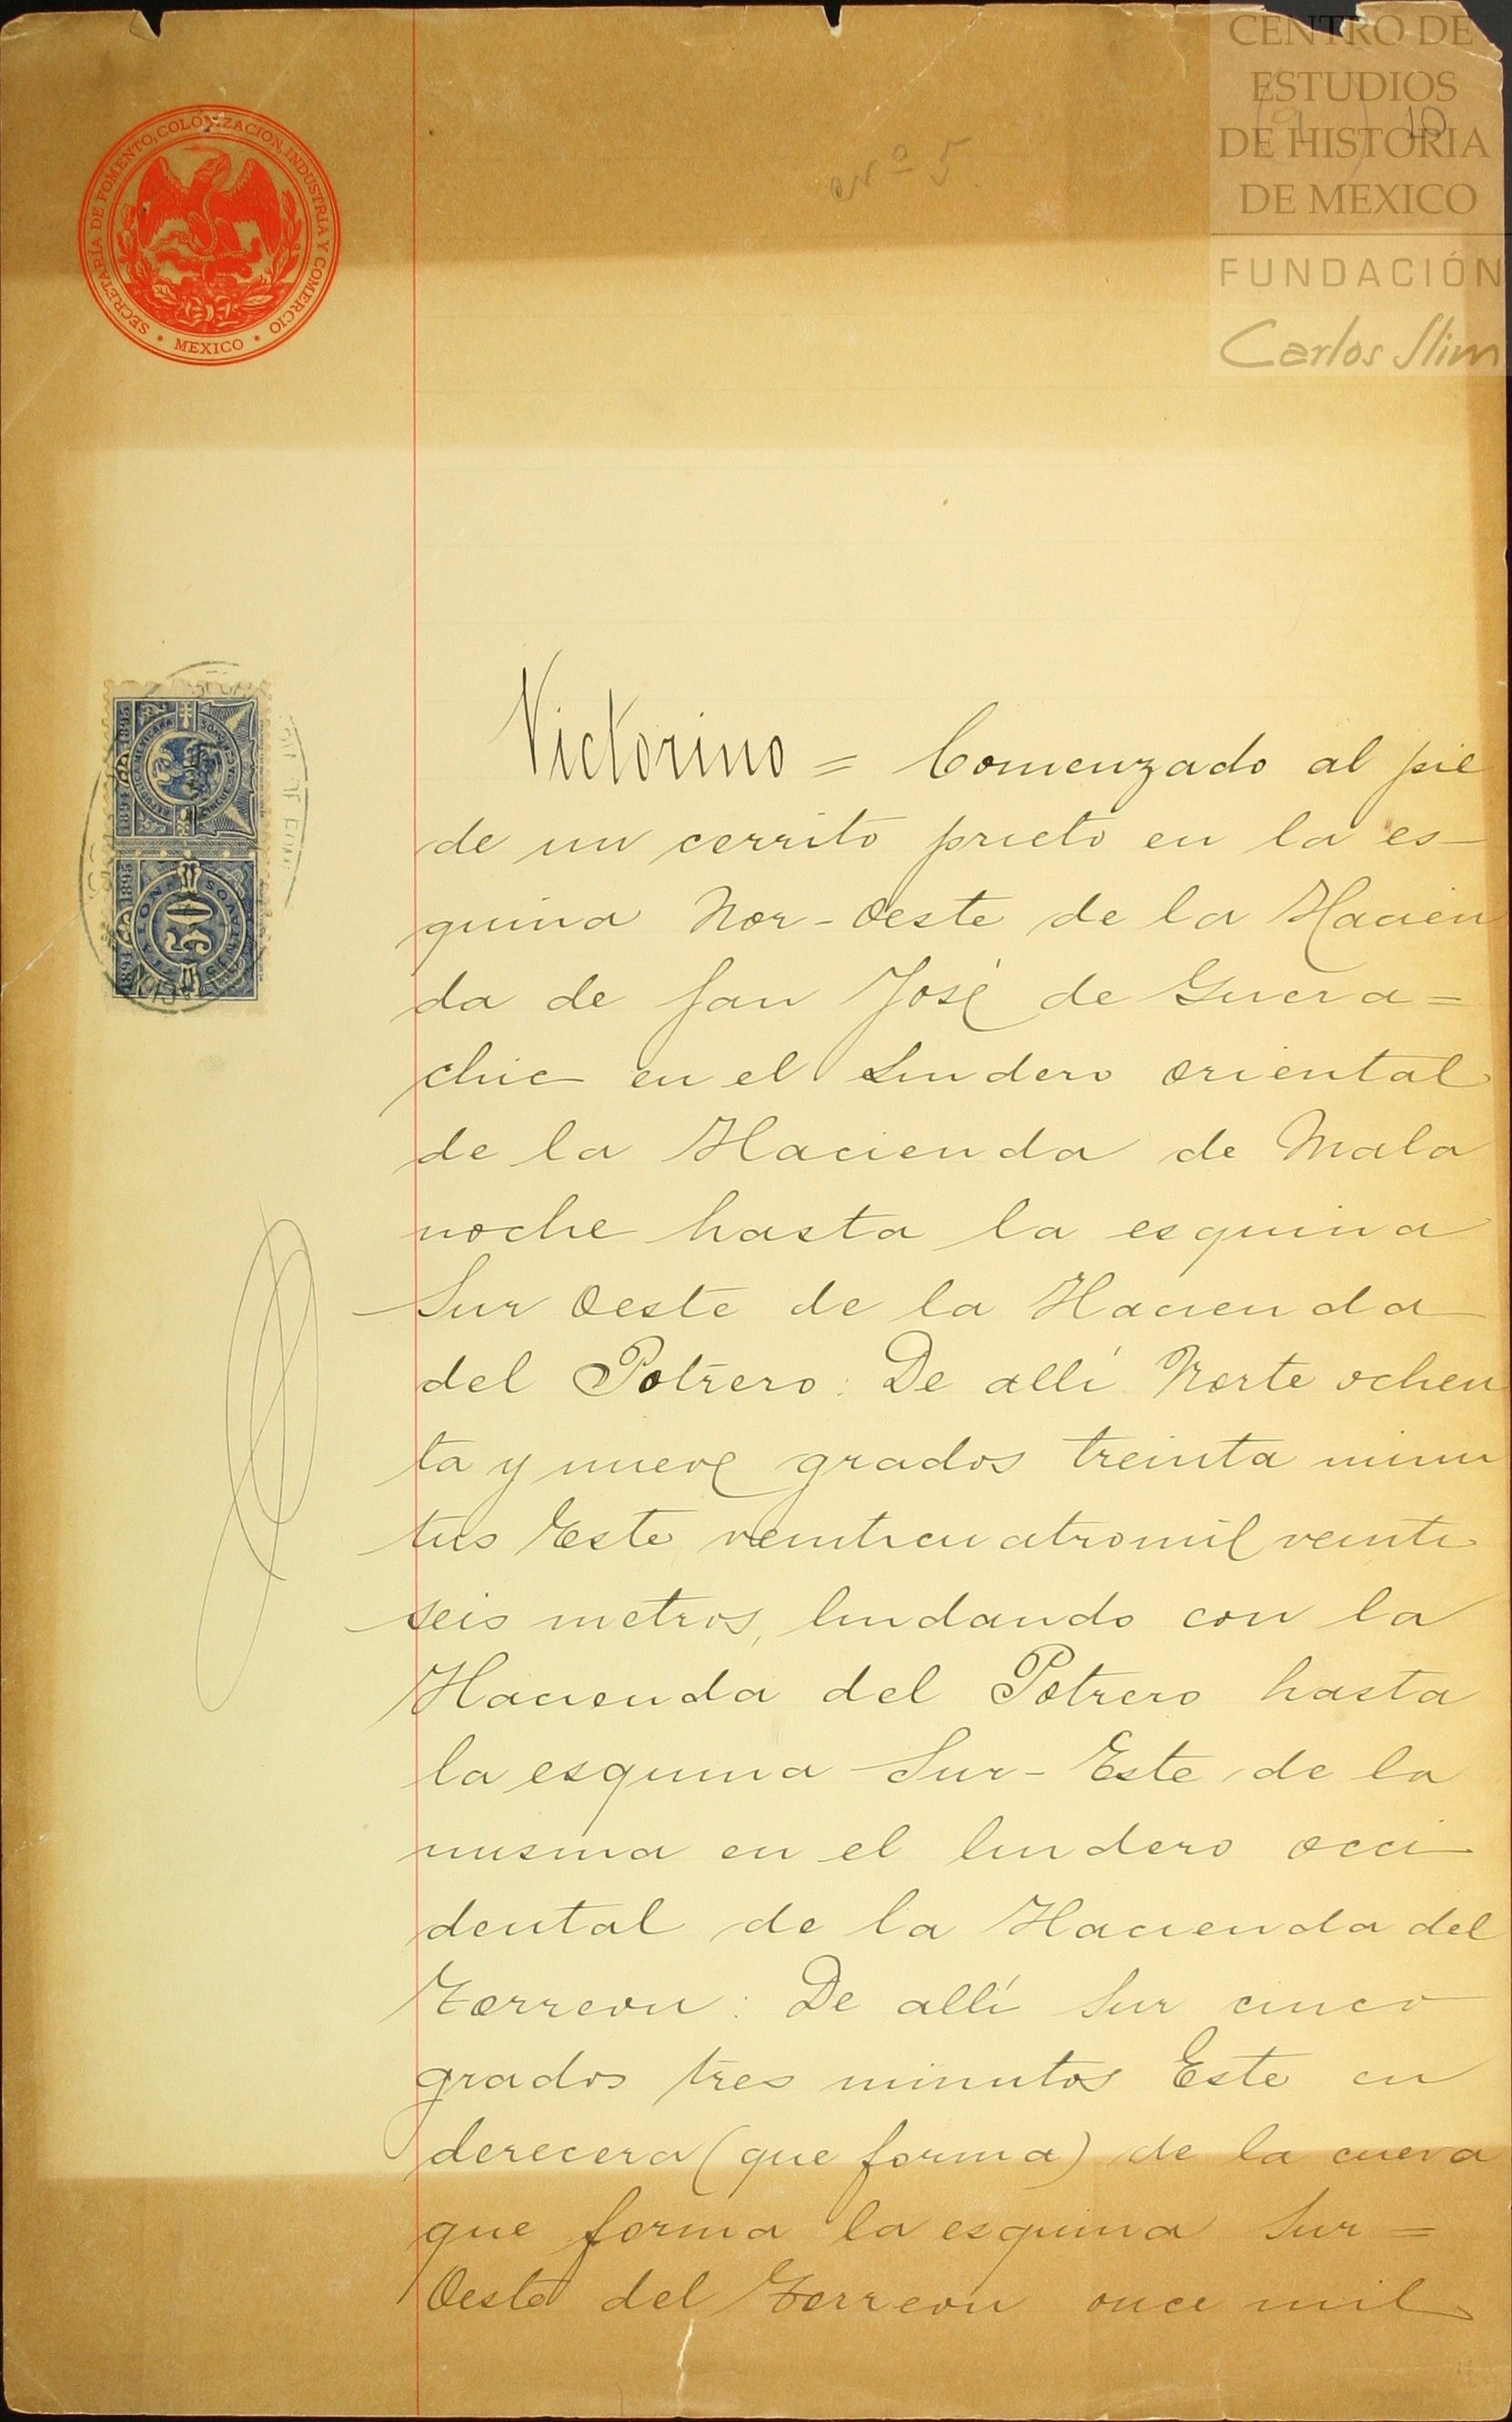 CENTRO DE
ESTUDIOS
DE HISTORIA
DE MEXICO
FUNDACIÓN
Carlos Slim
10
Nº 5
SECRETARÍA DE FOMENTO, COLONIZACION, INDUSTRIA Y COMERCIO
• MEXICO •
1894 1895
REPUBLICA MEXICANA
CINCUENTA CENTAVOS
50
1894 1895
Victorino = Comenzado al pié
de un cerrito prieto en la es-
quina Nor-Oeste de la Hacien
da de San José de Guera=
chic en el Lindero oriental
de la Hacienda de Mala
noche hasta la esquina
Sur Oeste de la Hacienda
del Potrero: De allí Norte ochen
ta y nueve grados treinta minu
tos Este veinticuatromil veinti
seis metros, lindando con la
Hacienda del Potrero hasta
la esquina Sur-Este de la
misma en el lindero occi
dental de la Hacienda del
Torreon: De allí Sur cinco
grados tres minutos Este en
derecera (que forma) de la cueva
que forma la esquina Sur=
Oeste del Torreon once mil